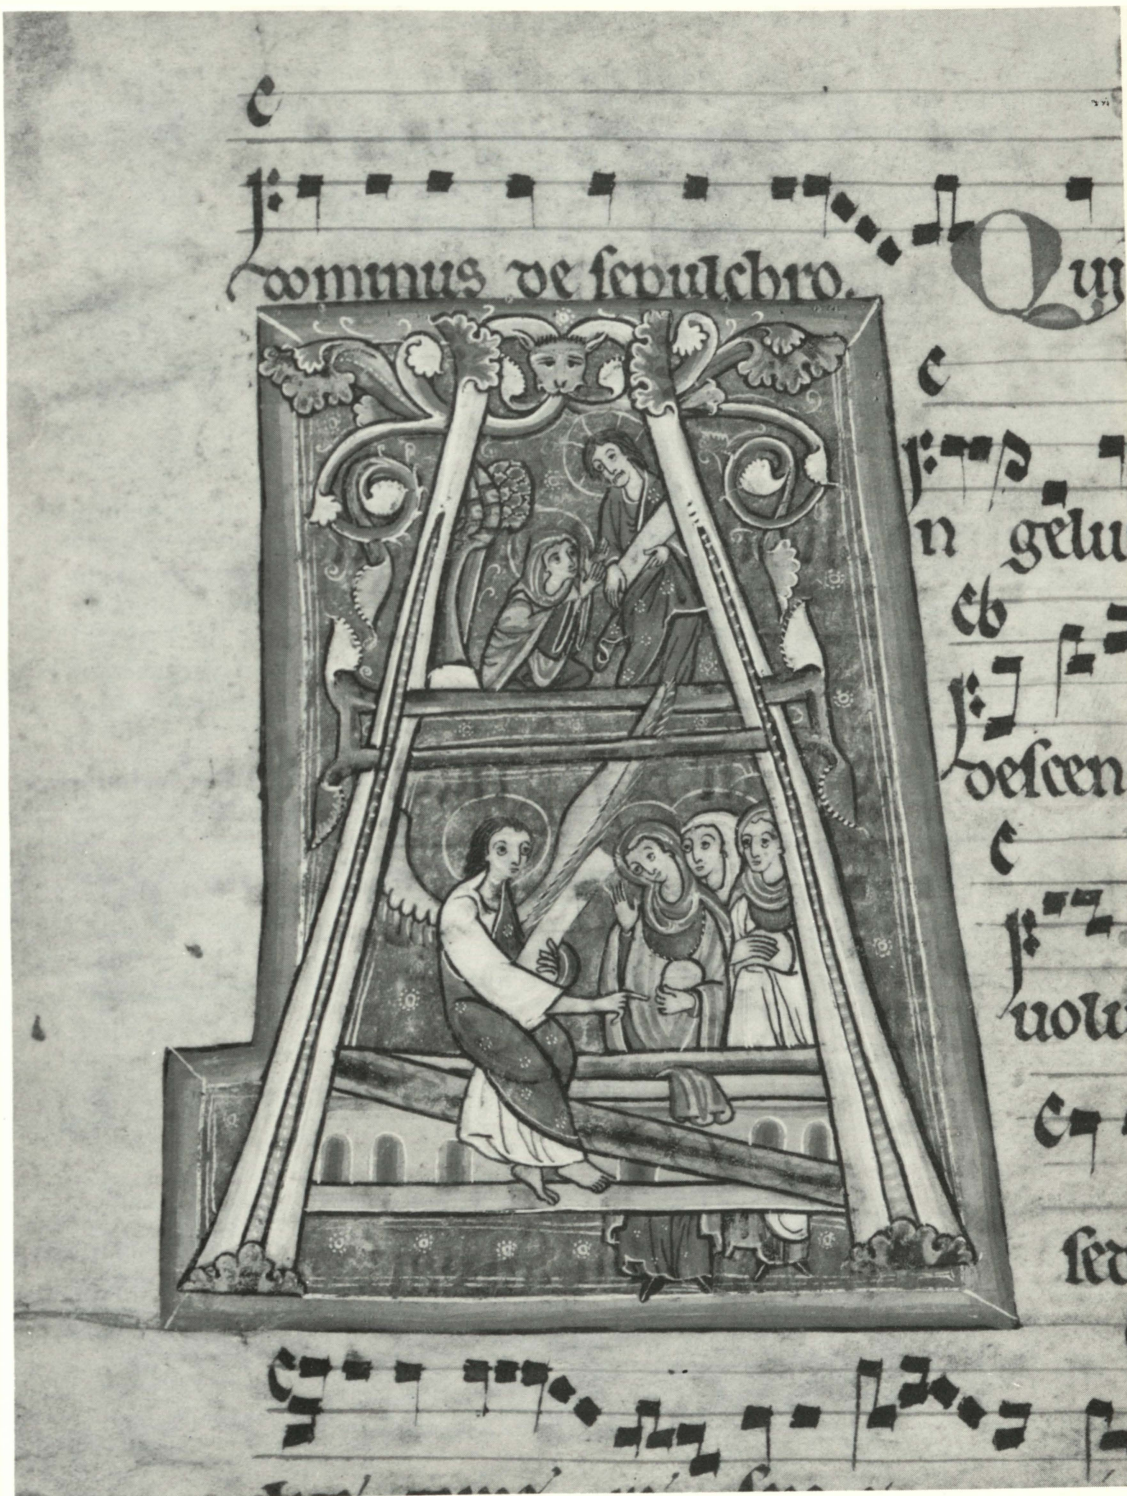 dominus de sepulchro. Qui
n gelu
descen
uolu
sed